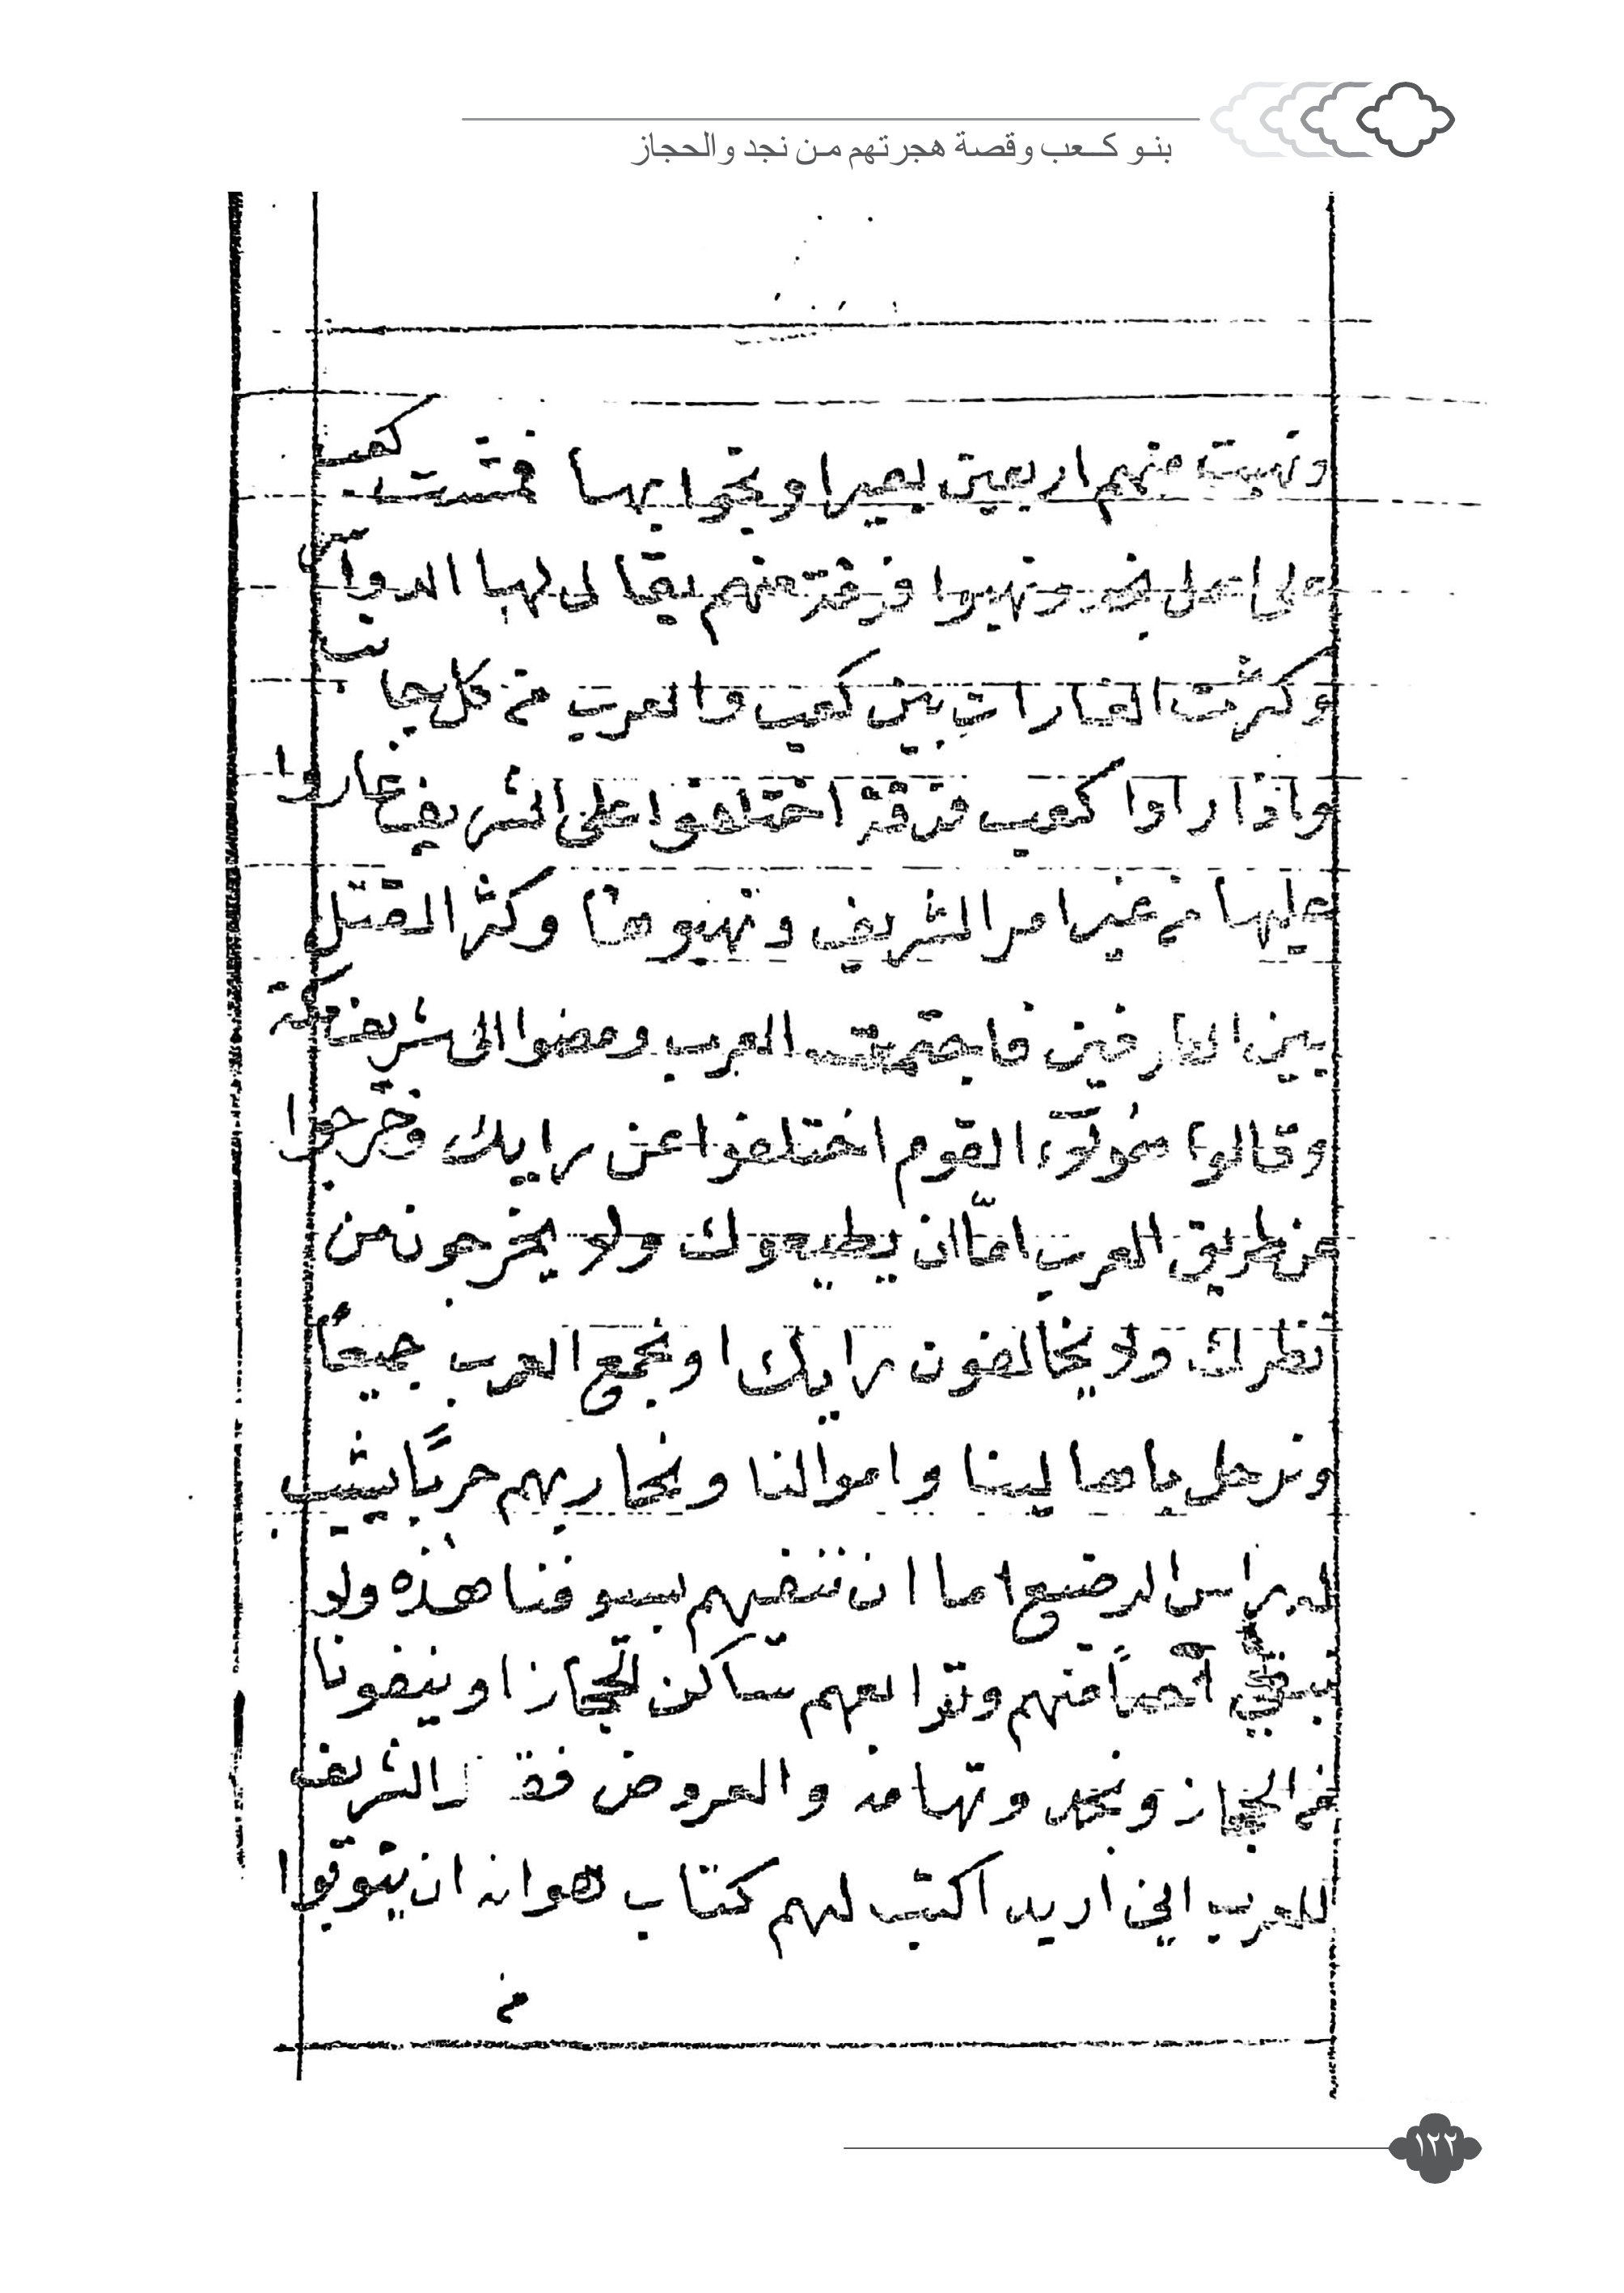 بنو كعب وقصة هجرتهم من نجد والحجاز
ونهبت منهم اربعين بعيرا ونجوا بها فمشت كعب
على اهل نجد ونهبوا فرقة منهم يقال لها الدواسر
وكثرت الغارات بين كعب والعرب من كل جانب
واذا راوا كعب فرقة اختلفوا على الشريف غاروا
عليها من غير امر الشريف ونهبوها وكثر القتل
بين الطرفين فاجتمعت العرب ومضوا الى شريف مكة
وقالوا هؤلآء القوم اختلفوا عن رايك وخرجوا
عن طريق العرب امّا ان يطيعوك ولا يخرجون من
نظرك ولا يخالفون رايك او نجمع العرب جميعًا
ونرحل باهالينا واموالنا ونحاربهم حربًا يشيب
له راس الرضيع اما ان ننفيهم بسيوفنا هذه ولا
يبقى منهم وتوابعهم ساكن الحجاز او ينفونا
من الحجاز ونجد وتهامه والعروض فقال الشريف
للعرب اني اريد اكتب لهم كتاب هوانه ان يتوبوا
من
١٢٢